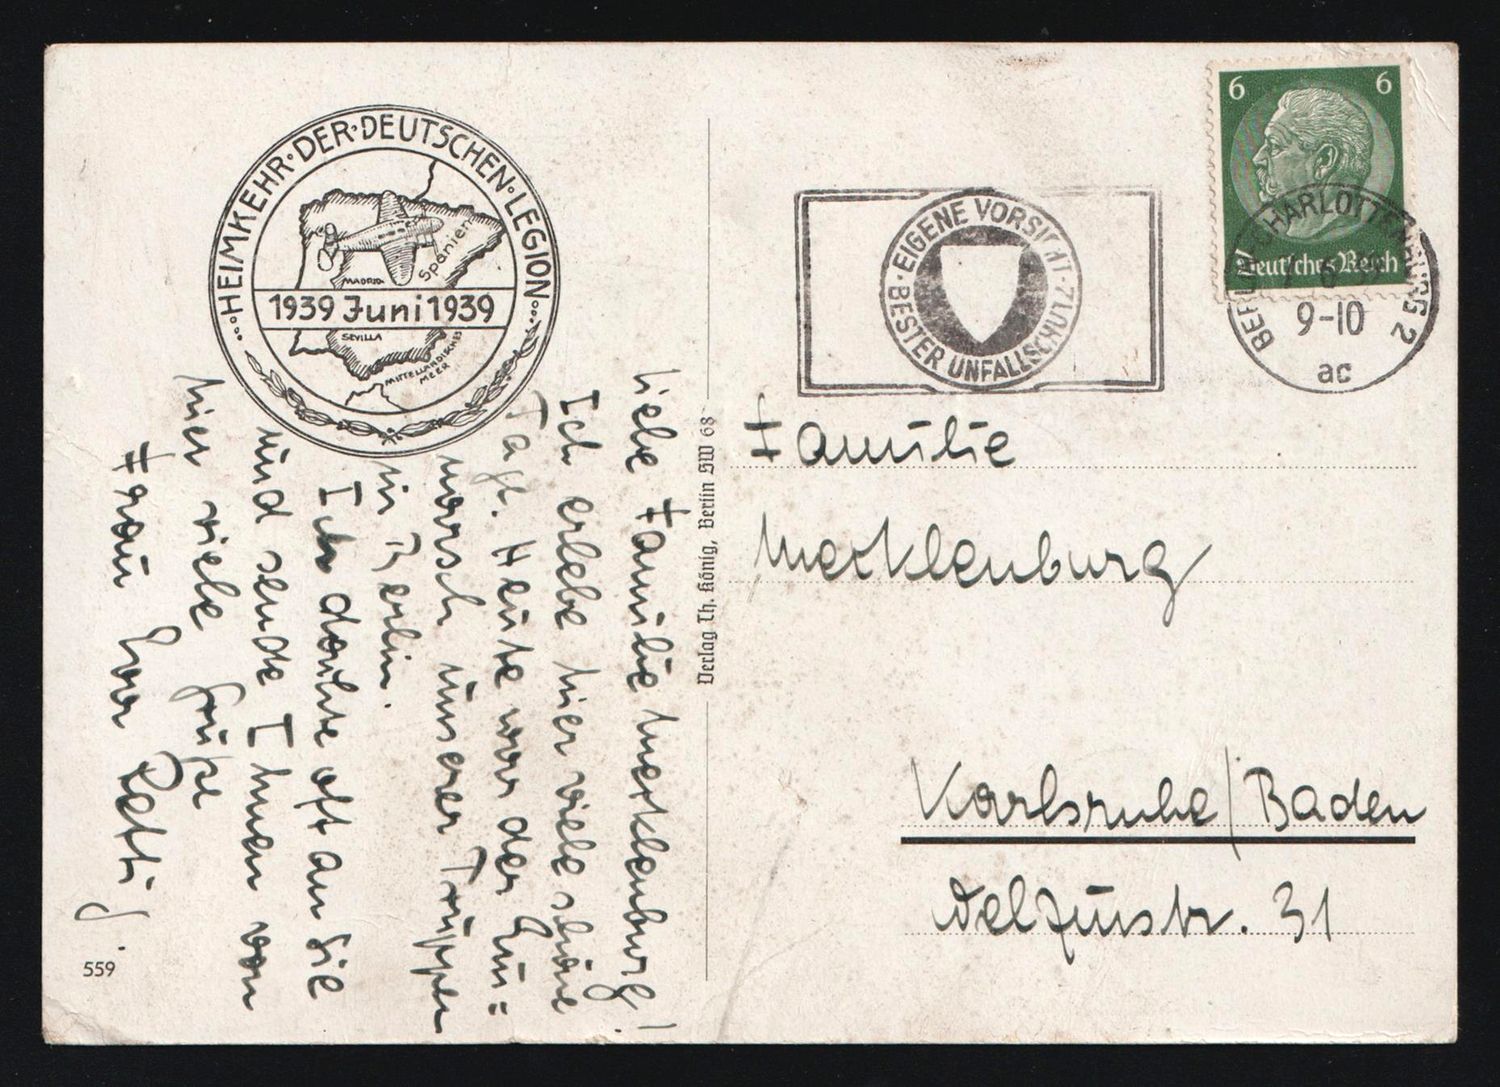 ·HEIMKEHR·DER·DEUTSCHEN·LEGION·
Spanien
MADRID
1939 Juni 1939
SEVILLA
MITTELLÄNDISCHES
MEER
Liebe Familie Mecklenburg!
Ich erlebe hier viele schöne
Tage. Heute war der Ein=
marsch unserer Truppen
in Berlin.
Ich dachte oft an Sie
und sende Ihnen von
hier viele Grüße
Frau
559
Verlag Th. König, Berlin SW 68
EIGENE VORSICHT·
BESTER UNFALLSCHUTZ
6 6
Deutsches Reich
BERLIN-CHARLOTTENBURG 2
9-10
ac
Familie
Mecklenburg
Karlsruhe/Baden
31